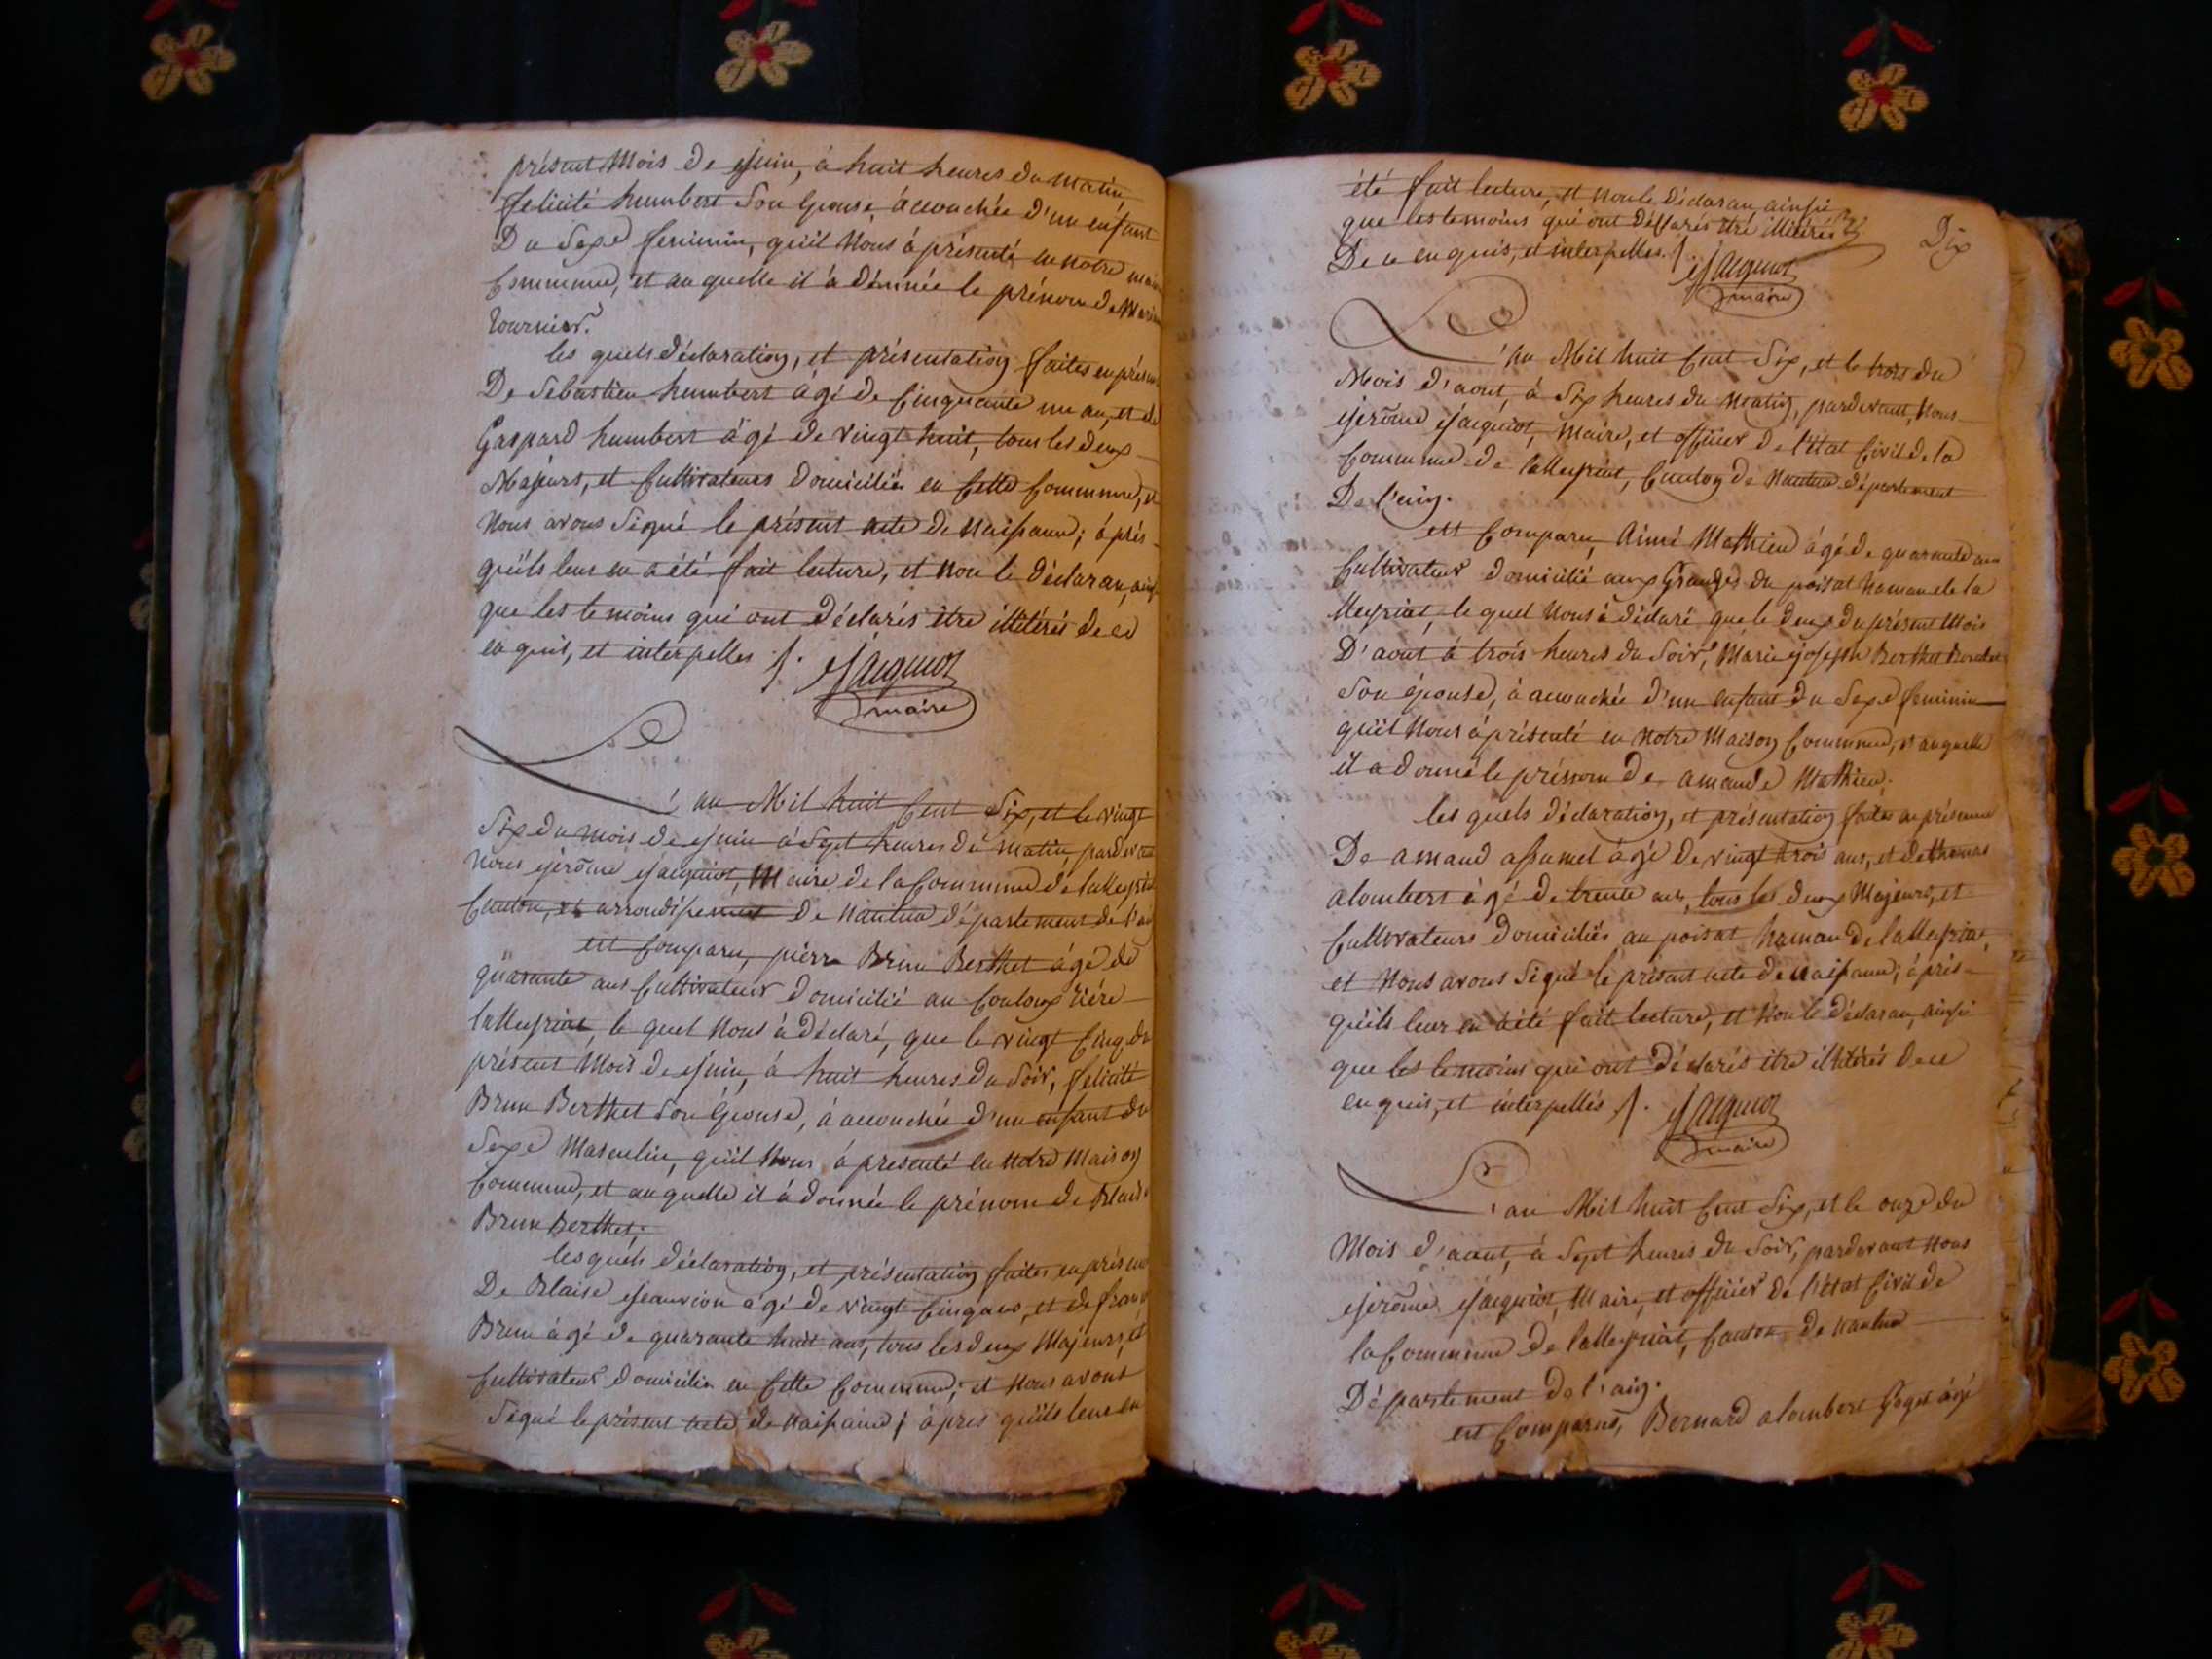 présent Mois de juin, à huit heures du matin,
felicité humbert Son épouse, á accouchée d'un enfant
Du Sexe feminin, qu'il Nous á présenté en notre maison
Commune, et au quelle il á donnée le prénom de Marie
tournier.
les quels déclaration, et présentation faites en présence
De Sébastien humbert ágé de Cinquante un an, et de
Gaspard humbert ágé de vingt huit, tous les deux
Majeurs, et Cultivateurs domiciliés en Cette Commune, et
Nous avons Signé le présent acte de Naissance; áprès
qu'ils leur en a été fait lecture, et Non le Déclaran, ainsi
que les temoins qui ont Déclarés être illitérés de ce
enquit, et interpelles ./. Jacquiot
maire
l'an Mil huit Cent Six, et le vingt
Six du mois de juin á Sept heures du matin, pardevant
Nous jérôme jacquiot, Maire de la Commune de lalleyriat
Canton, et arrondissement de Nantua département de l'ain
est Comparu, pierre Brun Berthet ágé de
quarante ans Cultivateur domicilié au Couloux riére
lalleyriat, le quel Nous á déclaré, que le vingt Cinq du
présent Mois de juin, á huit heures du Soir, felicité
Brun Berthet Son épouse, á accouchée d'un enfant du
Sexe Masculin, qu'il Nous á presenté en notre Maison
Commune, et au quelle il á donnée le prénom de Blaise
Brun Berthet;
les quels déclaration, et présentation faites en présence
De Blaise jeanvion ágé de vingt Cinq ans, et de
Brun ágé de quarante huit ans, tous les deux Majeurs, et
Cultivateur domicilié en Cette Commune; et Nous avons
Signé le présent acte de Naissance; áprès qu'ils leur en
été fait lecture, et Non le déclaran, ainsi
que les temoins qui ont Déclarés être illitérés
De ce enquis, et interpelles ./. Jacquiot
maire
Dix
l'an Mil huit Cent Six, et le trois du
Mois d'aout, á Six heures du Matin, pardevant, Nous
jérôme jacquiot, Maire, et officier de l'état Civil de la
Commune de lalleyriat, Canton de Nantua département
De l'ain.
est Comparu, Aimé Mathieu ágé de quarante ans
Cultivateur domicilié aux Granges du poisat hamau de la
lleyriat, le quel Nous á déclaré que le deux du présent Mois
D'aout á trois heures du Soir, Marie joseph Berthet
Son épouse, á accouchée d'un enfant du Sexe feminin
qu'il Nous á présenté en Notre Maison Commune, et auquelle
il a donné le prénom de amande Mathieu;
les quels déclaration, et présentation faites en présence
De amand assumel ágé de vingt trois ans, et de thomas
alombert ágé de trente ans, tous les deux Majeurs, et
Cultivateurs domiciliés au poisat hamau de lalleyriat,
et Nous avons Signé le présent acte de Naissance; áprès
qu'ils leur en á été fait lecture, et Non le déclaran, ainsi
que les temoins qui ont Déclarés être illitérés de ce
enquis, et interpellés ./. Jacquiot
maire
l'an Mil huit Cent Six, et le onze du
Mois d'aout, á Sept heures du Soir, pardevant Nous
jérôme jacquiot, Maire, et officier de l'état Civil de
la Commune de lalleyriat, Canton de Nantua
Département de l'ain.
est Comparus, Bernard alombert Goget ágé